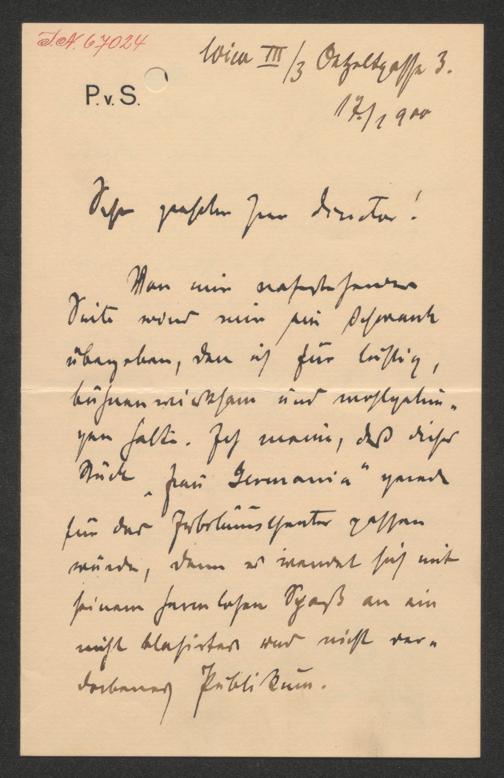 J.N. 67024
Wien III/3 Oetzeltgasse 3.
P.v.S.
17./1 900
Sehr geehrter Herr Director!
Von mir nahestehender
Seite wird mir ein Schwank
übergeben, den ich für lustig,
bühnenwirksam und wohlgelun-
gen halte. Ich meine, daß dieses
Stück „Frau Germania" gerade
für das Jubiläumstheater passen
würde, denn es wendet sich mit
seinem harmlosen Spaß an ein
nicht blasirtes und nicht ver-
dorbenes Publikum.